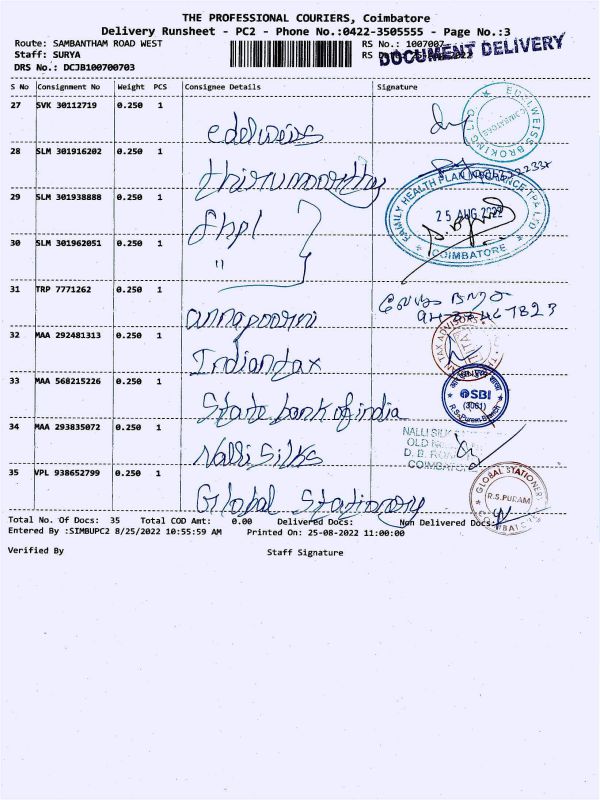 THE PROFESSIONAL COURIERS, Coimbatore
Delivery Runsheet - PC2 - Phone No.:0422-3505555 - Page No.:3
Route: SAMBANTHAM ROAD WEST RS No.: 1007007
Staff: SURYA RS
DOCUMENT DELIVERY
DRS No.: DCJB100700703
S No Consignment No Weight PCS Consignee Details Signature
27 SVK 30112719 0.250 1 edelweiss
EDELWEISS BROKING LTD
COIMBATORE
28 SLM 301916202 0.250 1 thirumoorthy
29 SLM 301938888 0.250 1 fhpl
FAMILY HEALTH PLAN INSURANCE TPA LTD
25 AUG 2022
COIMBATORE
30 SLM 301962051 0.250 1 "
31 TRP 7771262 0.250 1 annapoorni
32 MAA 292481313 0.250 1 Indian tax
TAX ADVISORS
33 MAA 568215226 0.250 1 State bank of india
SBI
(3061)
R.S.Puram Branch
34 MAA 293835072 0.250 1 Nalli Silks
NALLI SILK
OLD NO
D. B. ROAD
COIMBATO
35 VPL 938652799 0.250 1 Global Stationery
GLOBAL STATIONERY
R.S.PURAM
Total No. Of Docs: 35 Total COD Amt: 0.00 Delivered Docs: Non Delivered Docs:
Entered By :SIMBUPC2 8/25/2022 10:55:59 AM Printed On: 25-08-2022 11:00:00
Verified By Staff Signature